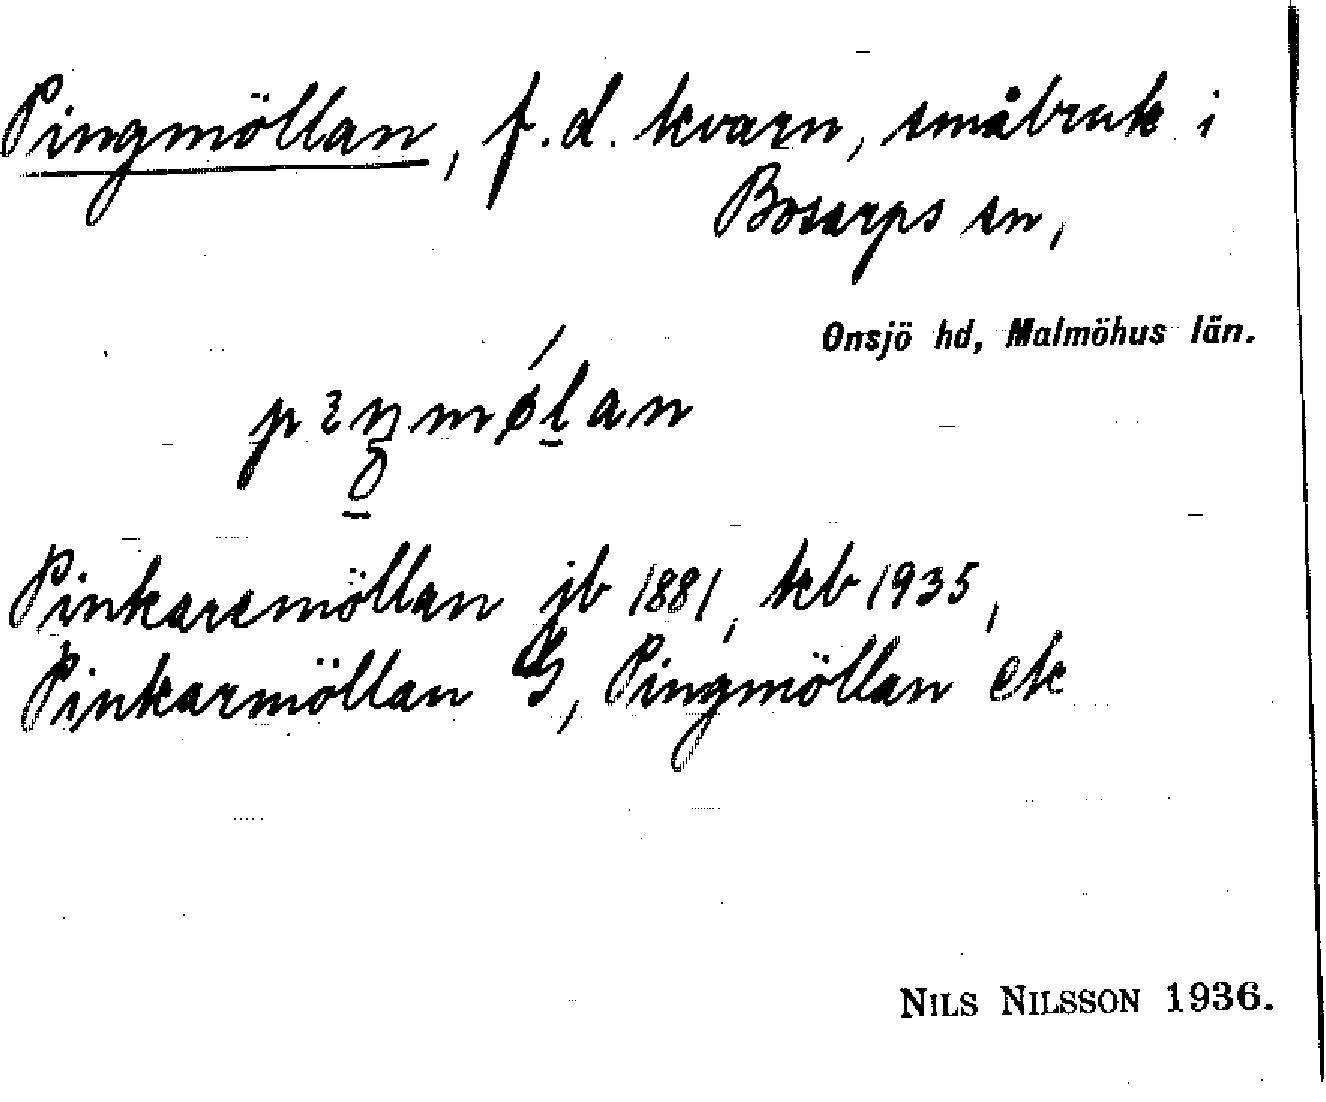 Pingmöllan, f.d. kvarn, småbruk i
Bosarps sn,
Onsjö hd, Malmöhus län.
Pinkaremöllan jb 1881, kb 1935,
Pinkarmöllan G, Pingmöllan ek
NILS NILSSON 1936.